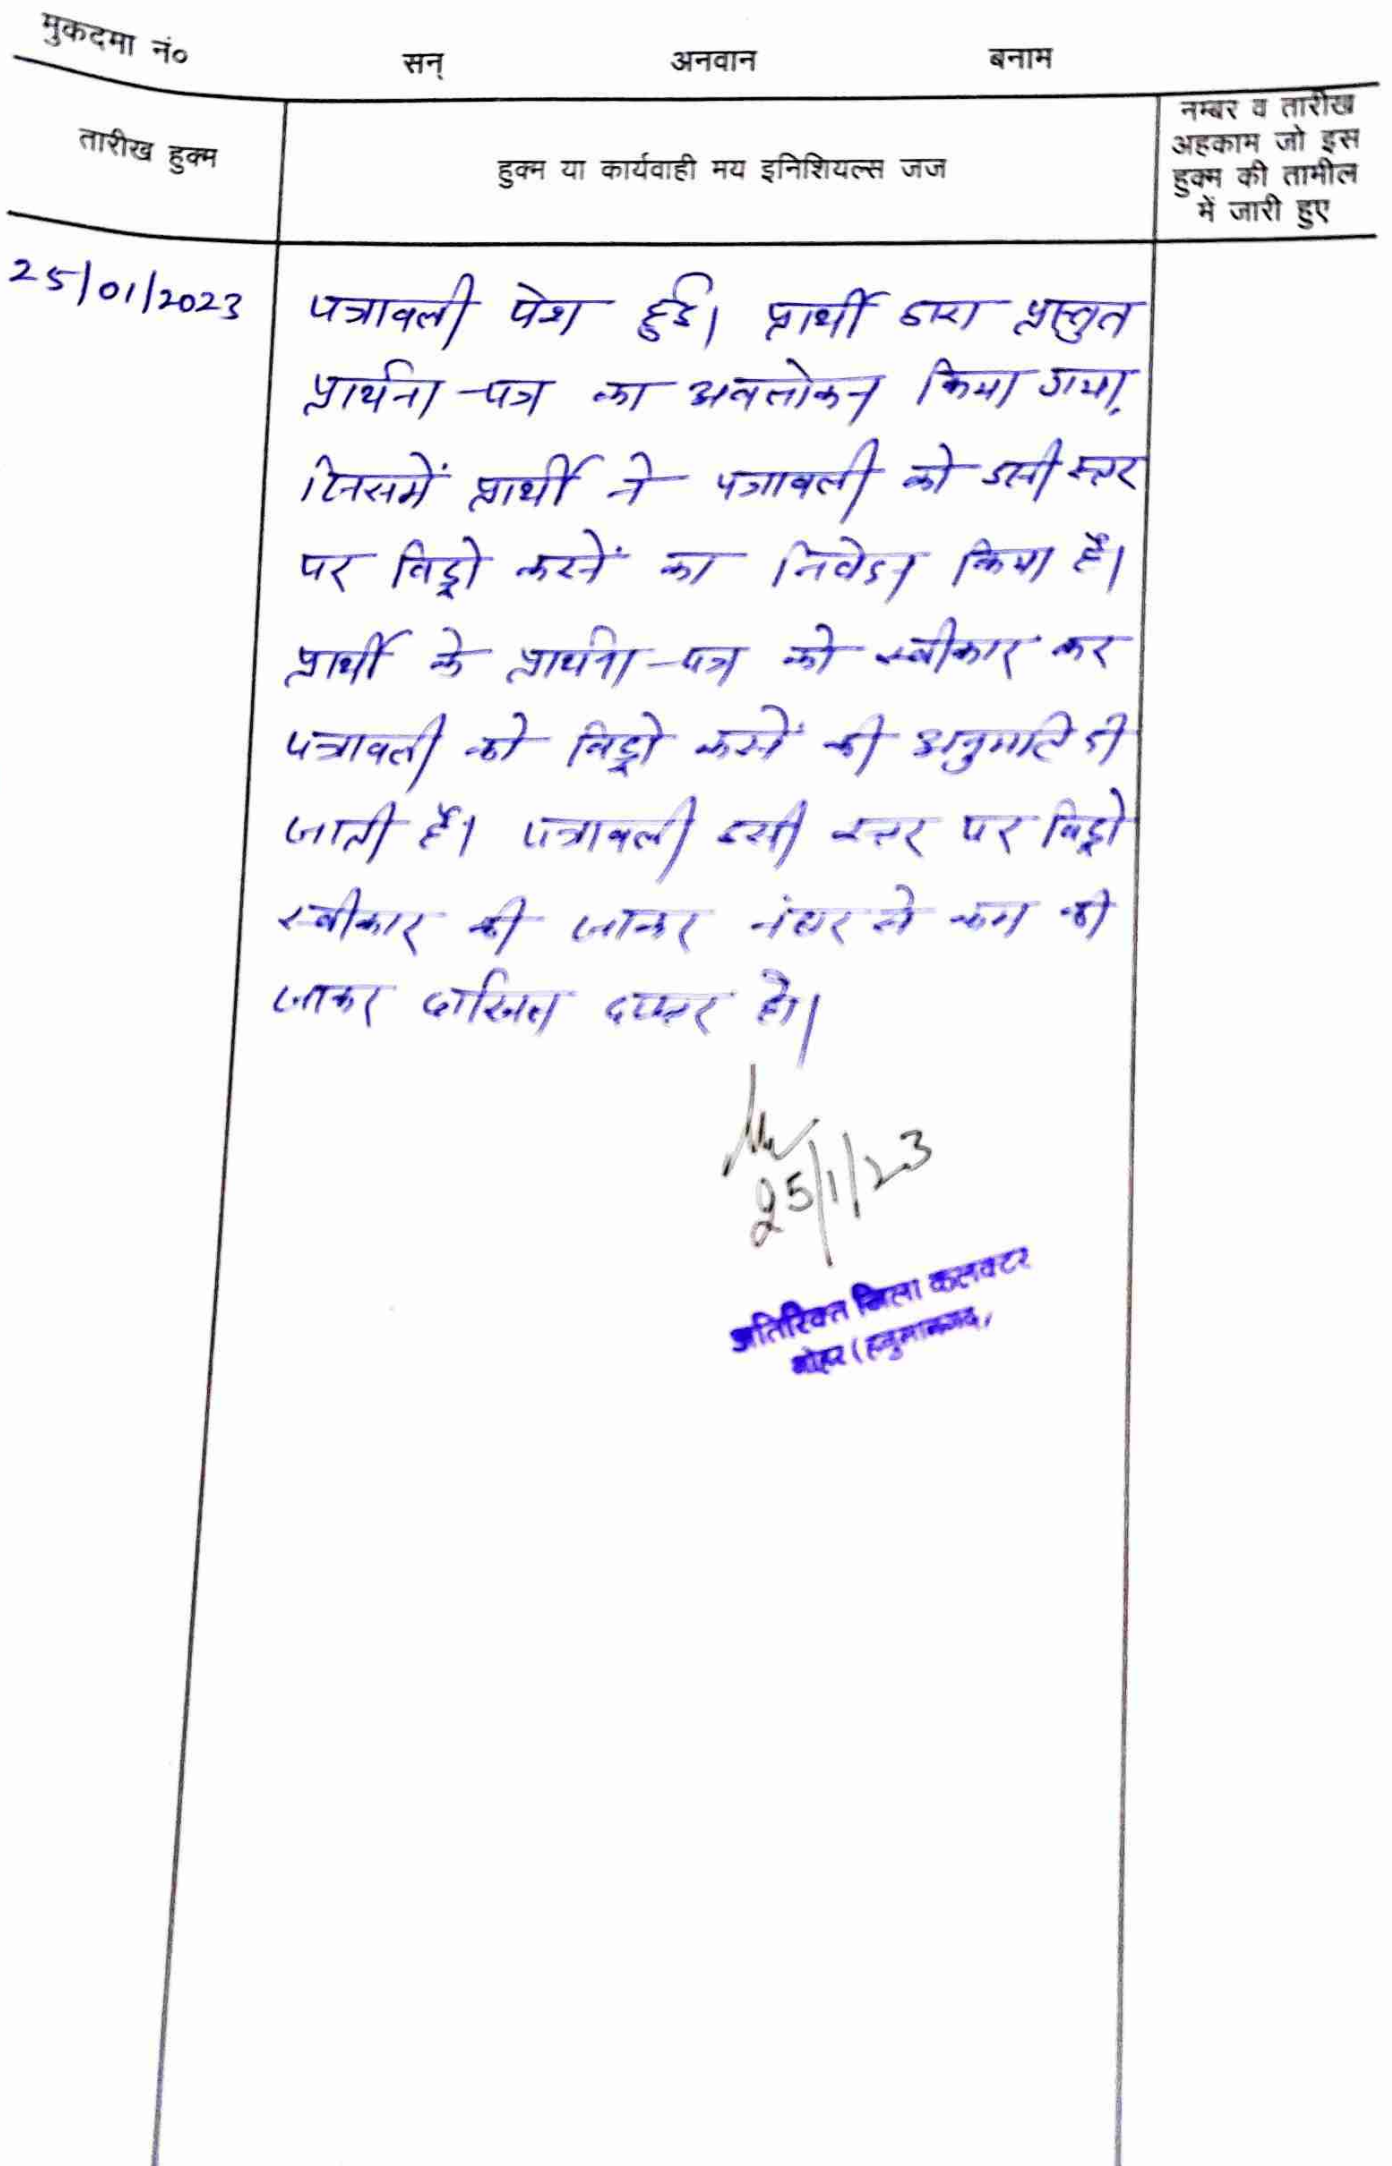 मुकदमा नं० सन् अनवान बनाम
तारीख हुक्म
हुक्म या कार्यवाही मय इनिशियल्स जज
नम्बर व तारीख
अहकाम जो इस
हुक्म की तामील
में जारी हुए
25/01/2023
पत्रावली पेश हुई। प्रार्थी द्वारा प्रस्तुत
प्रार्थना-पत्र का अवलोकन किया गया,
जिसमें प्रार्थी ने पत्रावली को इसी स्तर
पर विड्रो करनें का निवेदन किया है।
प्रार्थी के प्रार्थना-पत्र को स्वीकार कर
पत्रावली को विड्रो करनें की अनुमति दी
जाती है। पत्रावली इसी स्तर पर विड्रो
स्वीकार की जाकर नंबर से कम की
जाकर दाखिल दफ्तर हो।
25/1/23
अतिरिक्त जिला कलक्टर
नोहर (हनुमानगढ़)